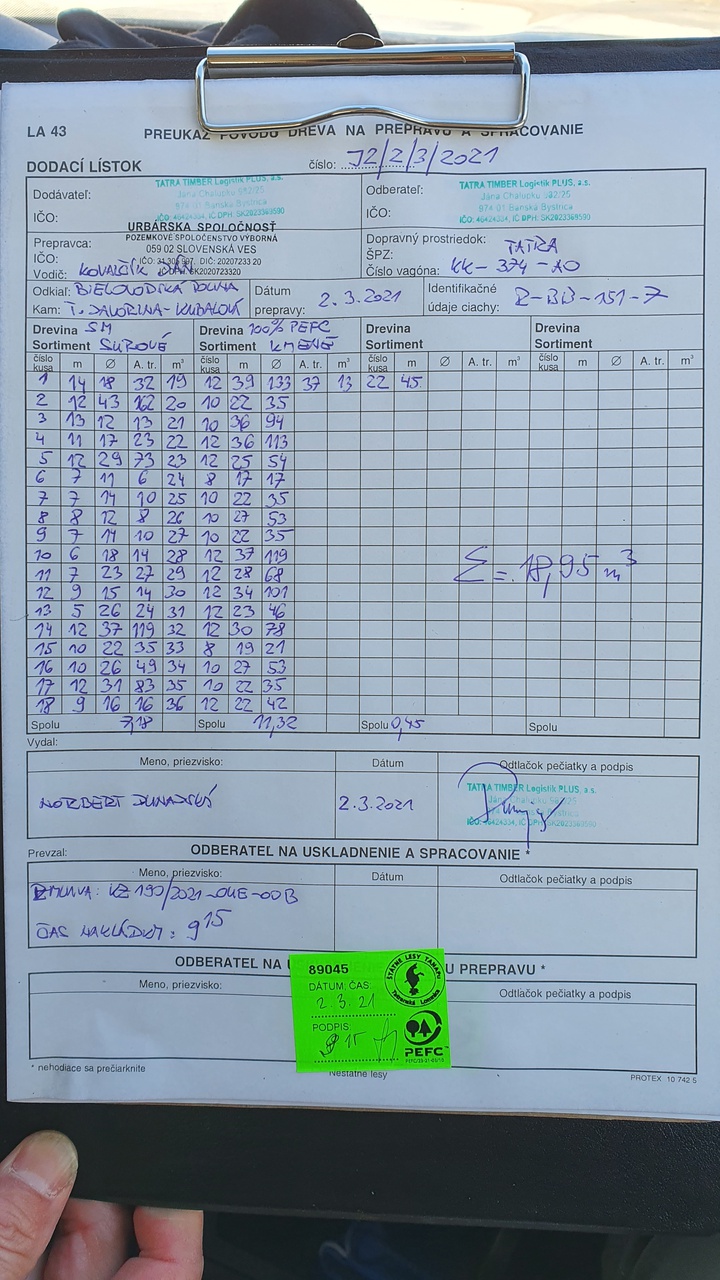 LA 43 PREUKAZ PÔVODU DREVA NA PREPRAVU A SPRACOVANIE
DODACÍ LÍSTOK číslo: J2/2/3/2021
Dodávateľ: TATRA TIMBER Logistik PLUS, a.s.
Jána Chalupku 582/25
974 01 Banská Bystrica
IČO: IČO: 46424334, IČ DPH: SK2023369590
Odberateľ: TATRA TIMBER Logistik PLUS, a.s.
Jána Chalupku 582/25
974 01 Banská Bystrica
IČO: IČO: 46424334, IČ DPH: SK2023369590
URBÁRSKA SPOLOČNOSŤ
Prepravca: POZEMKOVÉ SPOLOČENSTVO VÝBORNÁ
059 02 SLOVENSKÁ VES
IČO: DIČ: 20207233 20
Vodič: KOVALČÍK JÁN SK2020723320
Dopravný prostriedok: TATRA
ŠPZ:
Číslo vagóna: KK- 374 -AO
Odkiaľ: BIELOVODSKÁ DOLINA
Kam: T. JAVORINA-KUBALOVÁ
Dátum
prepravy: 2.3.2021
Identifikačné
údaje ciachy: R-BB-151-7
Drevina SM Drevina 100% PEFC Drevina Drevina
Sortiment SUROVÉ Sortiment KMENE Sortiment Sortiment
číslo kusa m Ø A. tr. m³ číslo kusa m Ø A. tr. m³ číslo kusa m Ø A. tr. m³ číslo kusa m Ø A. tr. m³
1 14 18 32 19 12 39 133 37 13 22 45
2 12 43 162 20 10 22 35
3 13 12 13 21 10 36 94
4 11 17 23 22 12 36 113
5 12 29 73 23 12 25 54
6 7 11 6 24 8 17 17
7 7 14 10 25 10 22 35
8 8 12 8 26 10 27 53
9 7 14 10 27 10 22 35
10 6 18 14 28 12 37 119
11 7 23 27 29 12 28 68
12 9 15 14 30 12 34 101
13 5 26 24 31 12 23 46
14 12 37 119 32 12 30 78
15 10 22 35 33 8 19 21
16 10 26 49 34 10 27 53
17 12 31 83 35 10 22 35
18 9 16 16 36 12 22 42
Σ = 18,95 m³
Spolu 7,18 Spolu 11,32 Spolu 0,45 Spolu
Vydal:
Meno, priezvisko: Dátum Odtlačok pečiatky a podpis
NORBERT DUNAJSKÝ 2.3.2021
TATRA TIMBER Logistik PLUS, a.s.
Jána Chalupku 582/25
IČO: 46424334, IČ DPH: SK2023369590
Prevzal: ODBERATEĽ NA USKLADNENIE A SPRACOVANIE *
Meno, priezvisko: Dátum Odtlačok pečiatky a podpis
ZMLUVA: KZ 190/2021-OKE-OOB
ČAS NAKLÁDKY: 9 15
ODBERATEĽ NA U PREPRAVU *
Meno, priezvisko: Odtlačok pečiatky a podpis
89045
DÁTUM: ČAS
2.3.21
PODPIS:
15
ŠTÁTNE LESY TANAPU
Tatranská Lomnica
PEFC
* nehodiace sa prečiarknite
Neštátne lesy
PROTEX 10 742 5